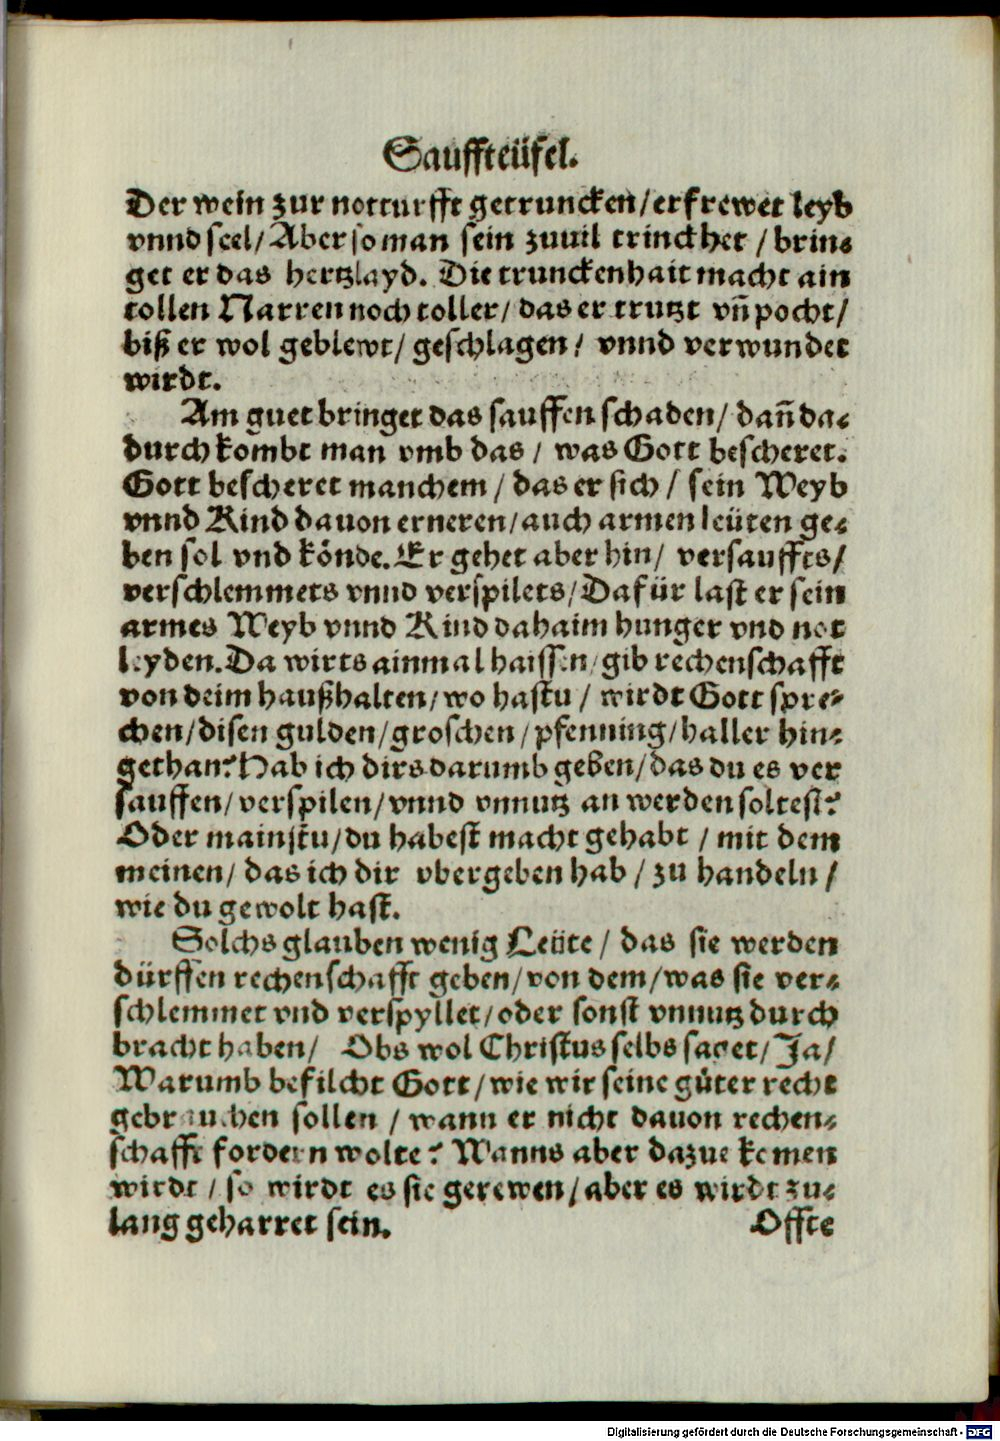 Sauffteüfel.
Der wein zur notturfft getruncken/erfrewet leyb
vnnd seel/Aber so man sein zuuil trinckhet / brin⸗
get er das hertzlayd. Die trunckenhait macht ain
tollen Narren noch toller/ das er trutzt vñ pocht/
biß er wol geblewt/ geschlagen/ vnnd verwundet
wirdt.
Am guet bringet das sauffen schaden/ dañ da⸗
durch kombt man vmb das / was Gott bescheret.
Gott bescheret manchem / das er sich / sein Weyb
vnnd Kind dauon erneren/auch armen leüten ge⸗
ben sol vnd könde. Er gehet aber hin/ versauffts/
verschlemmets vnnd verspilets/Dafür last er sein
armes Weyb vnnd Kind dahaim hunger vnd not
leyden.Da wirts ainmal haissen/gib rechenschafft
von deim haußhalten/wo hastu / wirdt Gott spre⸗
chen/disen gulden/groschen/pfenning/haller hin⸗
gethan?Hab ich dirs darumb geben/das du es ver
sauffen/verspilen/vnnd vnnutz an werden soltest?
Oder mainstu/du habest macht gehabt / mit dem
meinen/ das ich dir vbergeben hab / zu handeln /
wie du gewolt hast.
Solchs glauben wenig Leüte / das sie werden
dürffen rechenschafft geben/von dem/was sie ver⸗
schlemmet vnd verspyllet/oder sonst vnnutz durch
bracht haben/ Obs wol Christus selbs saget/Ja/
Warumb befilcht Gott/wie wir seine güter recht
gebrauchen sollen / wann er nicht dauon rechen⸗
schafft fordern wolte? Wanns aber dazue komen
wirdt / so wirdt es sie gerewen/aber es wirdt zu⸗
lang geharret sein.
Offte
Digitalisierung gefördert durch die Deutsche Forschungsgemeinschaft - DFG